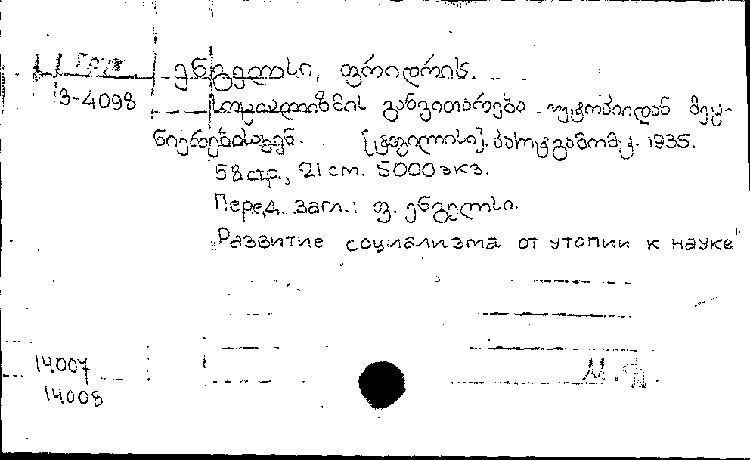 Груз
ენგელსი, ფრიდრიხ.
Э-4098
სოციალიზმის განვითარება უტოპიიდან მეც-
ნიერებისაკენ. [ტფილისი]. პარტგამომც. 1935.
58 стр., 21 cm. 5000 экз.
Перед. загл.: ფ. ენგელსი.
"Развитие социализма от утопии к науке"
14007
14008